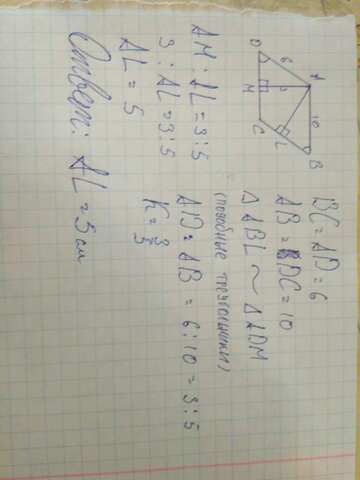 A 10 B
6
3
L
D M C
BC = AD = 6
AB = DC = 10
△ ABL ~ △ ADM
(подобные треугольники)
AD : AB = 6 : 10 = 3 : 5
K = 3/5
AM : AL = 3 : 5
3 : AL = 3 : 5
AL = 5
Ответ: AL = 5 см